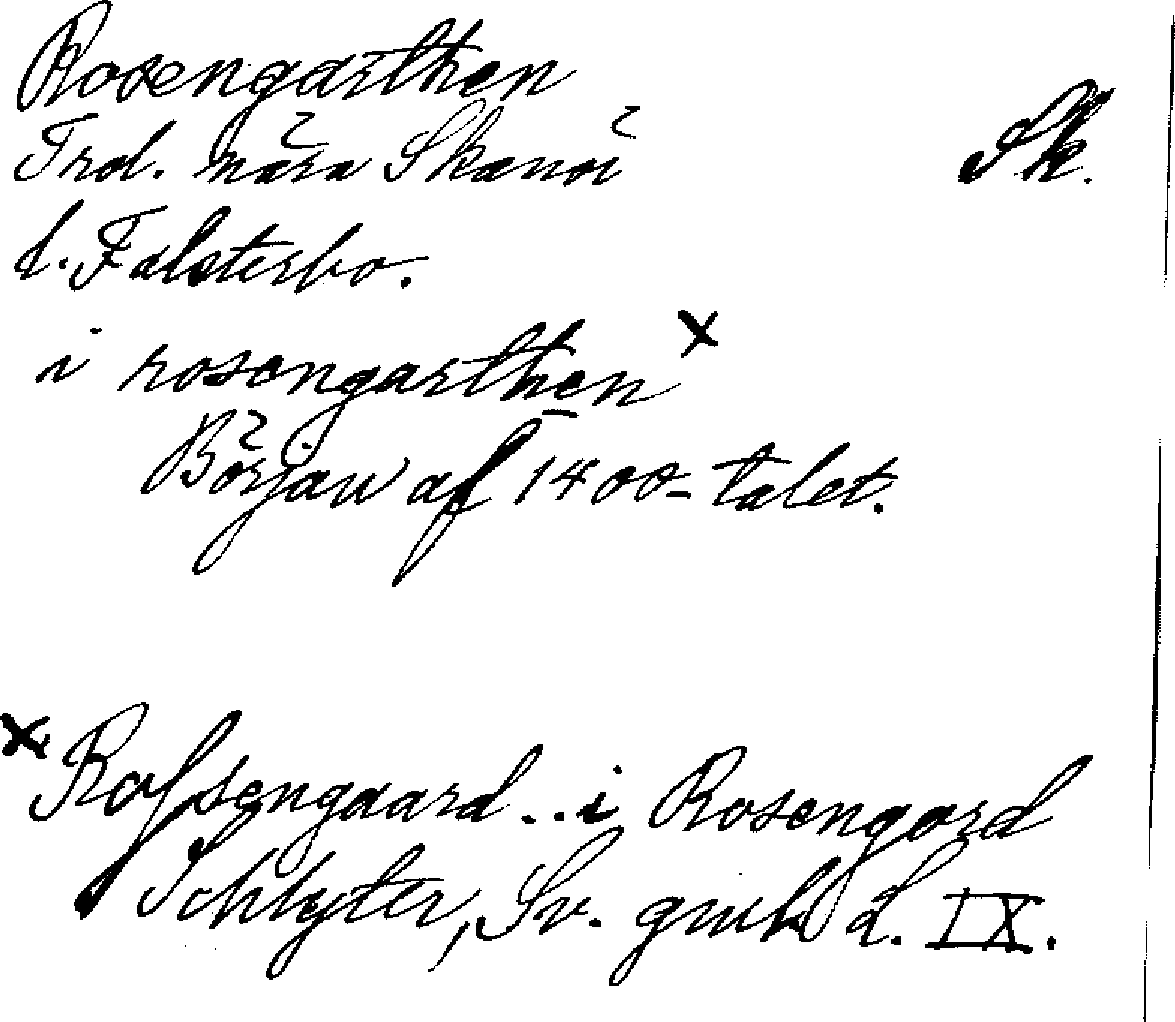 Rosengarthen
Trol. nära Skanör Sk.
l. Falsterbo.
i rosengarthen x
Början af 1400-talet.
x Rofsengaard .. i Rosengord
Schlyter, Sv. gml. d. IX.